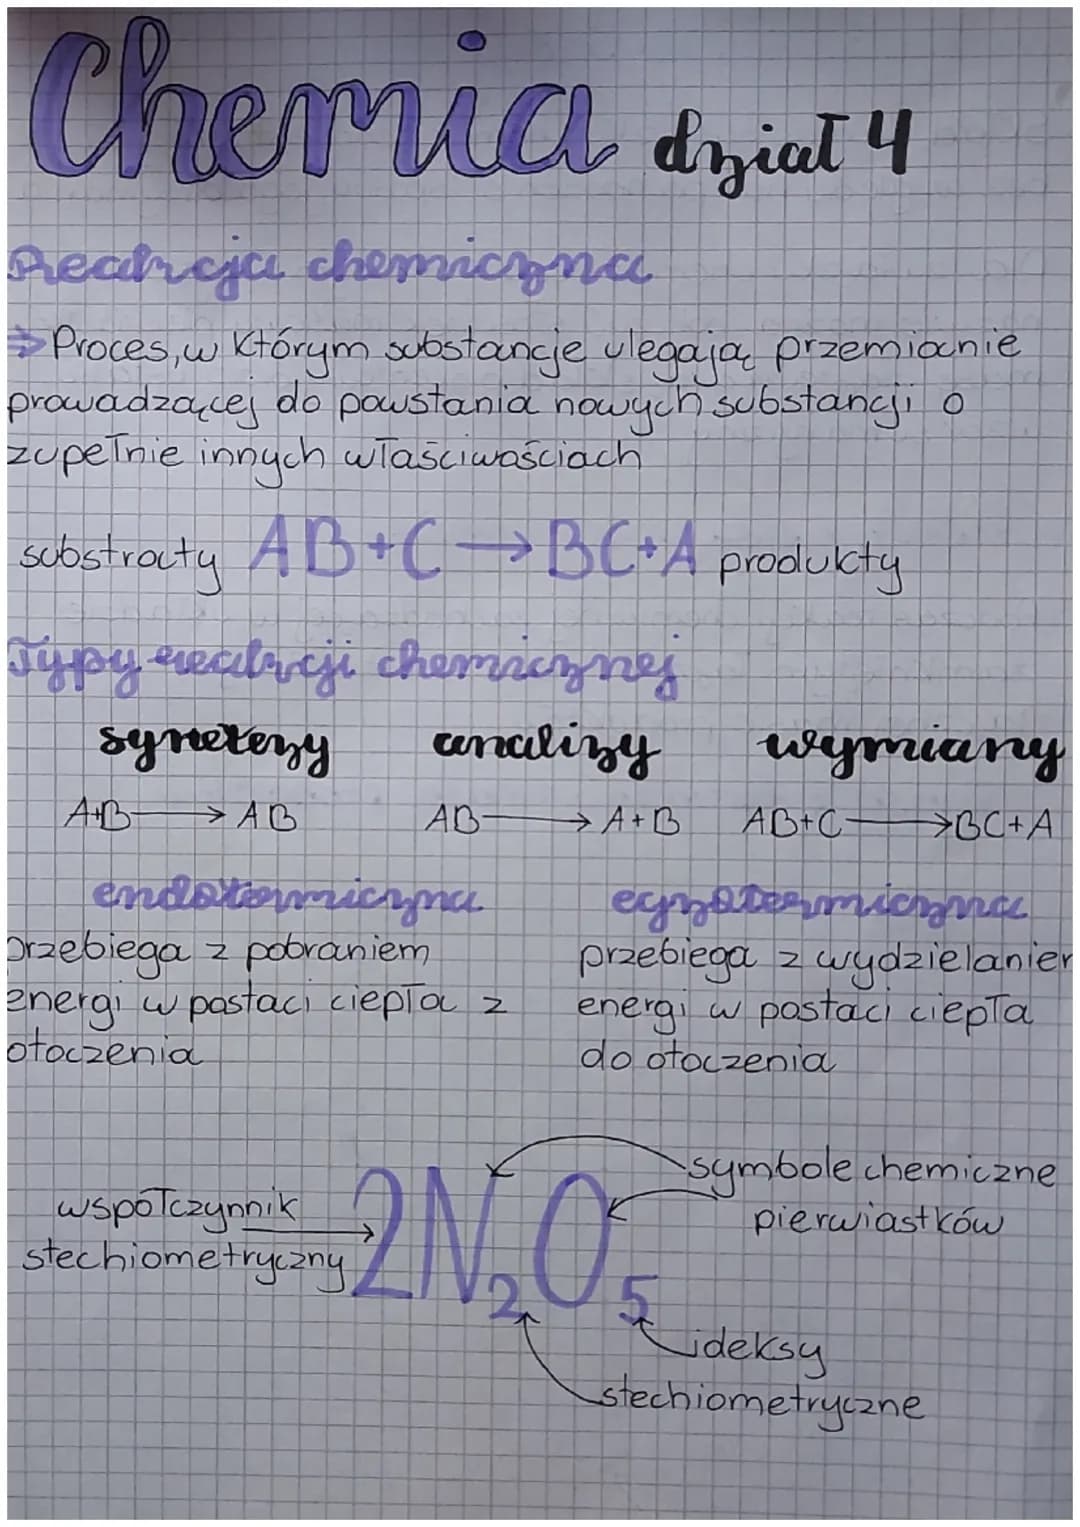 Chemia dział 4
Reakcja chemiczna
⇒ Proces, w którym substancje ulegają przemianie
prowadzącej do powstania nowych substancji o
zupełnie innych właściwościach
substraty AB+C → BC+A produkty
Typy reakcji chemicznej
syntezy analizy wymiany
A+B → AB AB → A+B AB+C → BC+A
endotermiczna egzotermiczna
przebiega z pobraniem przebiega z wydzielaniem
energi w postaci ciepła z energi w postaci ciepła
otoczenia do otoczenia
symbole chemiczne
współczynnik pierwiastków
stechiometryczny 2N₂O₅
ideksy
stechiometryczne